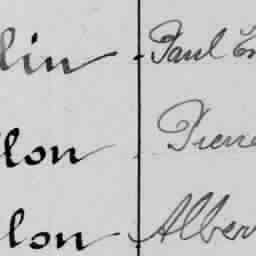 lin - Paul Er
lon - Pierre
lon - Alber